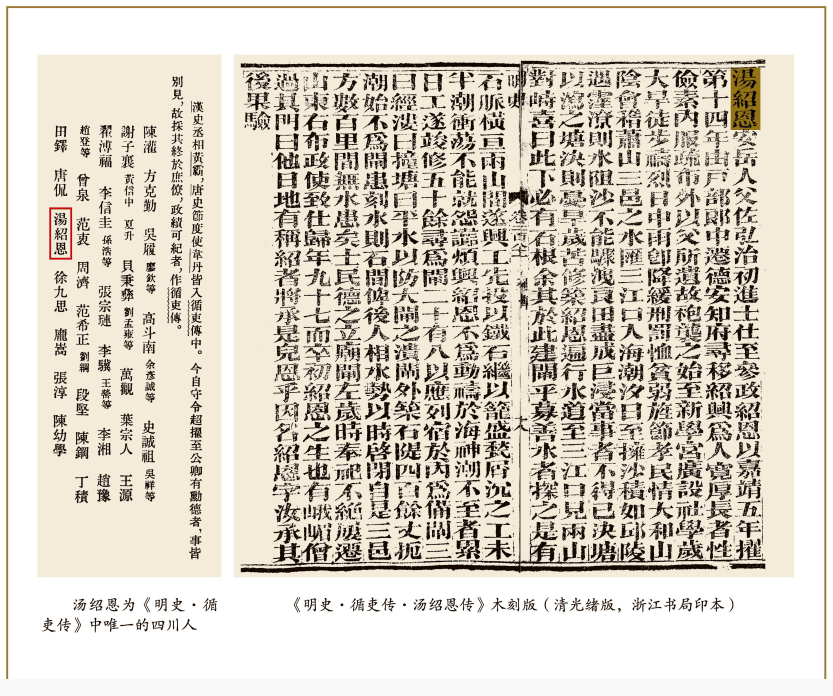 漢史丞相黃霸，唐史節度使韋丹皆入循吏傳中。今自守令超擢至公卿有勳德者，事皆
別見，故採其終於庶僚，政績可紀者，作循吏傳。
陳灌 方克勤 吳履 廖欽等 高斗南 余彥誠等 史誠祖 吳祥等
謝子襄 黃信中 夏升 貝秉彝 劉孟雍等 萬觀 葉宗人 王源
翟溥福 李信圭 孫浩等 張宗璉 李驥 王瑩等 李湘 趙豫
趙登等 曾泉 范衷 周濟 范希正 劉綱 段堅 陳鋼 丁積
田鐸 唐侃 湯紹恩 徐九思 龐嵩 張淳 陳幼學
湯紹恩安岳人父佐弘治初進士仕至參政紹恩以嘉靖五年擢
第十四年由戶部郎中遷德安知府尋移紹興為人寬厚長者性
儉素內服疏布外以父所遺故袍襲之始至新學宮廣設社學歲
大旱徒步禱烈日中雨即降緩刑罰恤貧弱旌節孝民情大和山
陰會稽蕭山三邑之水匯三江口入海潮汐日至擁沙積如邱陵
遇霪潦則水阻沙不能驟洩良田盡成巨浸當事者不得已決塘
以瀉之塘決則憂旱歲苦修築紹恩遍行水道至三江口見兩山
對峙喜曰此下必有石根余其於此建閘乎募善水者探之是有
石脈橫亘兩山間遂興工先投以鐵石繼以籠盛甃屑沉之工未
半潮衝蕩不能就怨讟煩興紹恩不為動禱於海神潮不至者累
日工遂竣修五十餘尋為閘二十有八以應列宿於內為備閘三
曰經漊曰撞塘曰平水以防大閘之潰閘外築石隄四百餘丈扼
潮始不為閘患刻水則石間俾後人相水勢以時啓閉自是三邑
方數百里間無水患矣士民德之立廟閘左歲時奉祀不絕屢遷
山東右布政使致仕歸年九十七而卒初紹恩之生也有峨嵋僧
過其門曰他日地有稱紹者將承是兒恩乎因名紹恩字汝承其
後果驗
汤绍恩为《明史·循
吏传》中唯一的四川人
《明史·循吏传·汤绍恩传》木刻版（清光绪版，浙江书局印本）